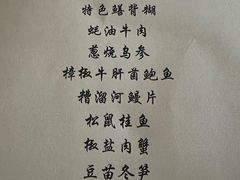 特色鳝背糊
蚝油牛肉
葱烧乌参
樟椒牛肝菌鲍鱼
糟溜河鳗片
松鼠桂鱼
椒盐肉蟹
豆苗冬笋